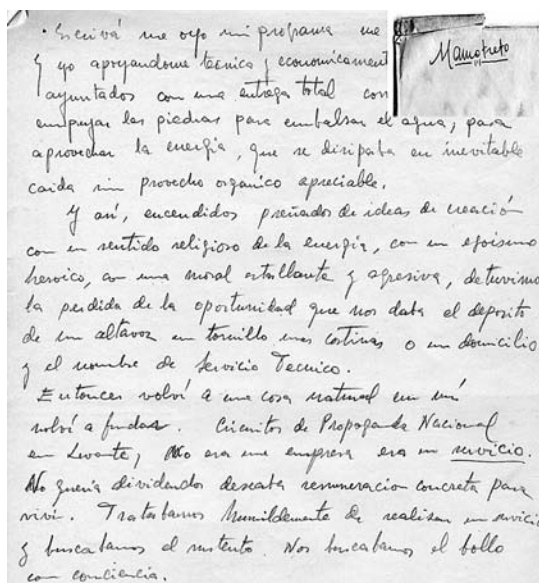 · Escrivá me oyo mi programa me
y yo apoyandome tecnica y economicament
ayuntados con una entrega total con
empujar las piedras para embalsar el agua, para
aprovechar la energia, que se disipaba en inevitable
caida sin provecho organico apreciable.
Y así, encendidos preñados de ideas de creación
con un sentido religioso de la energia, con un egoismo
heroico, con una moral estallante y agresiva, detuvimos
la perdida de la oportunidad que nos daba el deposito
de un altavoz un tornillo unas cortinas o un domicilio
y el nombre de Servicio Tecnico.
Entonces volví a una cosa natural en mí
volví a fundar. Circuitos de Propaganda Nacional
en Levante, No era una empresa era un servicio.
No queria dividendos deseaba remuneracion concreta para
vivir. Tratabamos humildemente de realizar un servicio
y buscabamos el sustento. Nos buscabamos el bollo
con conciencia.
Mamotreto